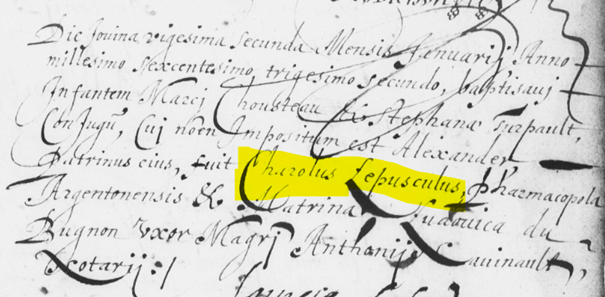 Die Jovina vigesima secunda Mensis Januarij Anno
millesimo sexcentesimo trigesimo secundo, baptisavj
Infantem Marcj Chousteau & Stephana Turpault,
Conjugũ, Cuj noẽn Impositum est Alexander
Patrinus eius, fuit Charolus Lepusculus, Pharmacopola
Argentonensis & Matrina Ludovica du
Bugnon Vxor Magrj Anthonij Lauinault,
Notarij :/